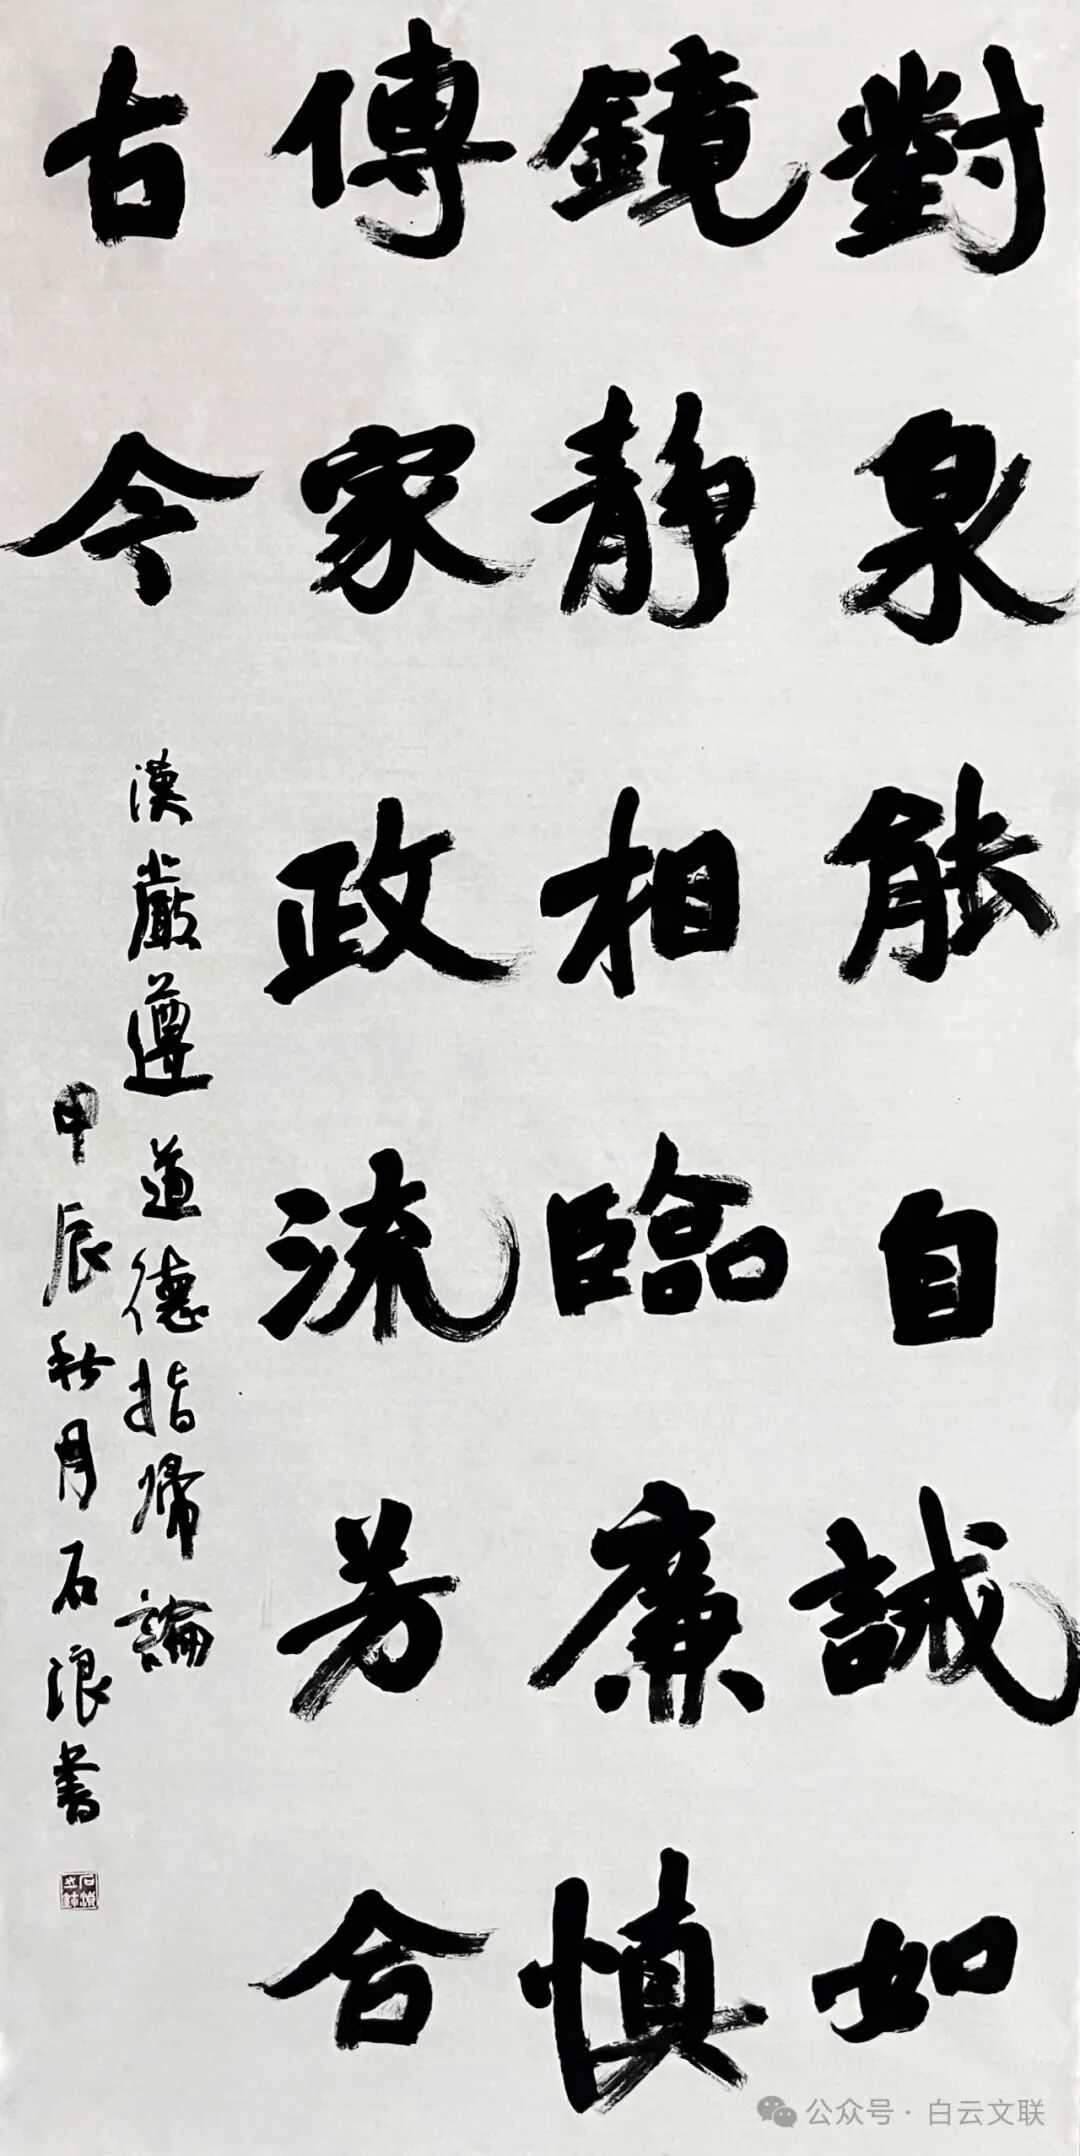 對泉能自誡如
鏡静相臨廉慎
傳家政流芳合
古今
漢嚴遵道德指歸論
甲辰秋月石浪書
公众号·白云文联